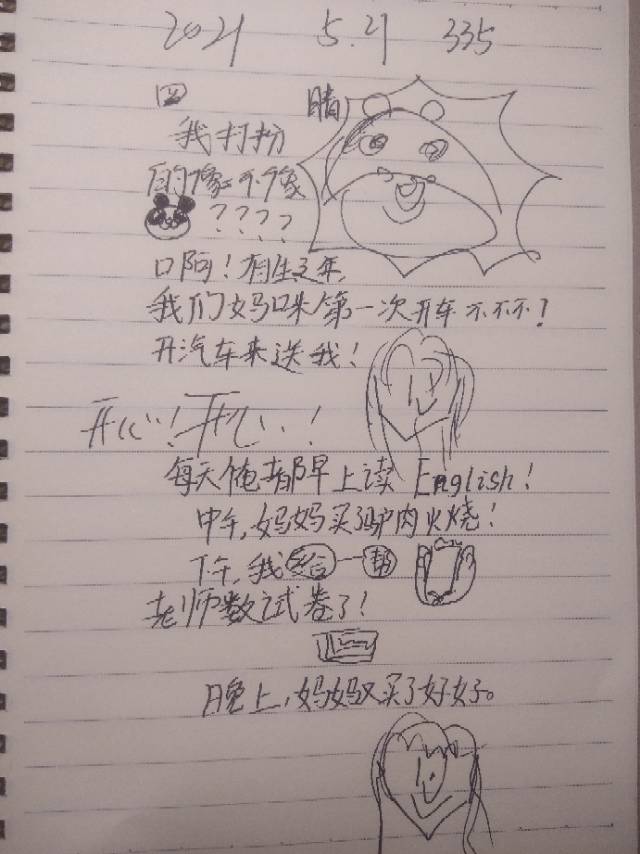 2021 5.21 335
四 晴
我打扮
的像不像
????
啊!有生之年,
我们妈咪第一次开车不不不!
开汽车来送我!
开心!开心!
每天俺都早上读English!
中午,妈妈买了驴肉火烧!
下午,我给一帮
老师数试卷了!
晚上,妈妈又买了好好。